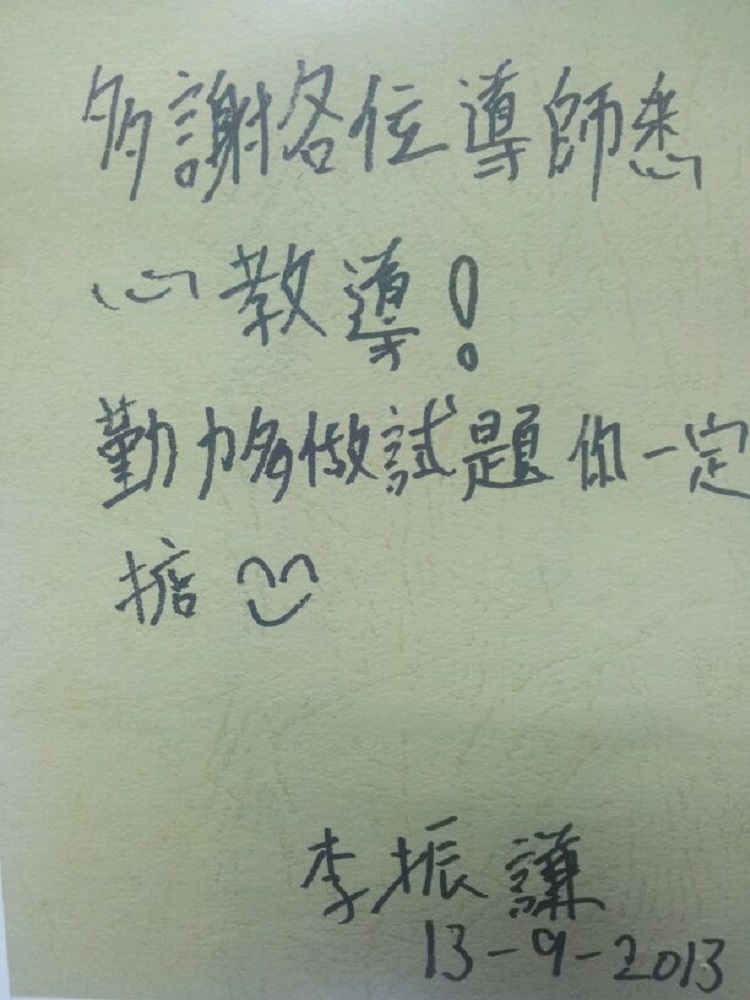 多謝各位導師悉
心教導！
勤力多做試題你一定
掂
李振謙
13-9-2013